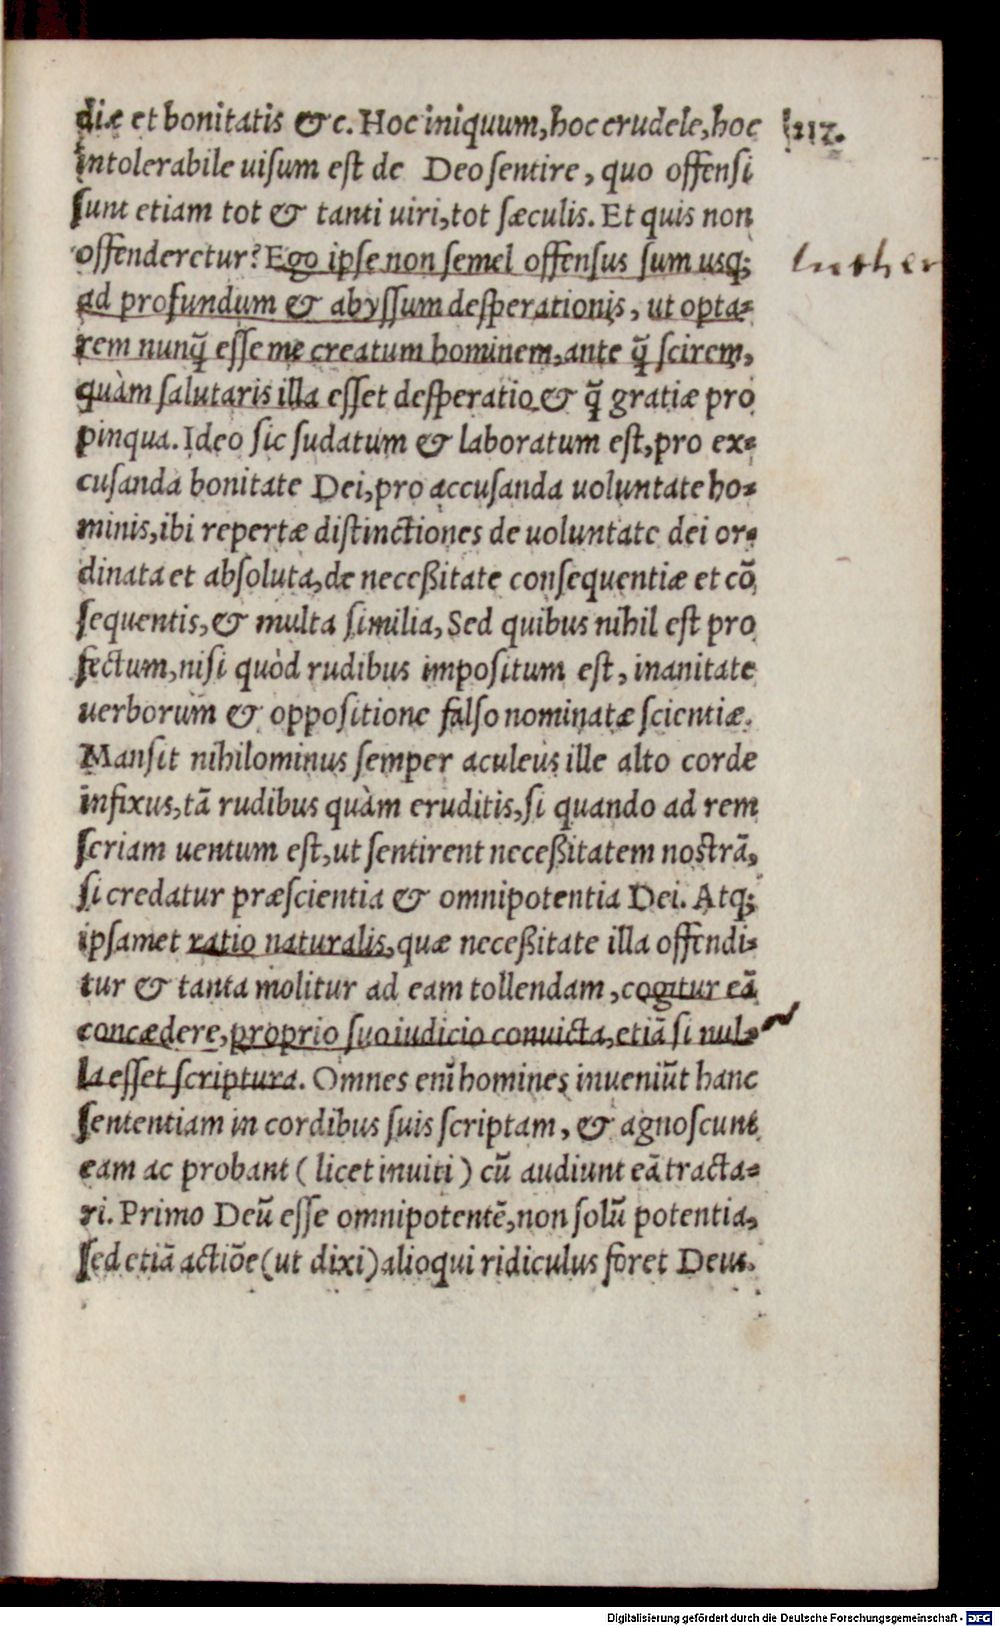 diæ et bonitatis &c. Hoc iniquum, hoc crudele, hoc
217.
intolerabile uisum est de Deo sentire, quo offensi
sunt etiam tot & tanti uiri, tot sæculis. Et quis non
offenderetur? Ego ipse non semel offensus sum usq;
luther
ad profundum & abyssum desperationis, ut opta-
rem nunq̃ esse me creatum hominem, ante q̃ scirem,
quàm salutaris illa esset desperatio & q̃ gratiæ pro
pinqua. Ideo sic sudatum & laboratum est, pro ex-
cusanda bonitate Dei, pro accusanda uoluntate ho-
minis, ibi repertæ distinctiones de uoluntate dei or-
dinata et absoluta, de neceßitate consequentiæ et cō
sequentis, & multa similia, Sed quibus nihil est pro
fectum, nisi quòd rudibus impositum est, inanitate
uerborum & oppositione falso nominatæ scientiæ.
Mansit nihilominus semper aculeus ille alto corde
infixus, tā rudibus quàm eruditis, si quando ad rem
seriam uentum est, ut sentirent neceßitatem nostrā,
si credatur præscientia & omnipotentia Dei. Atq;
ipsamet ratio naturalis, quæ neceßitate illa offendi-
tur & tanta molitur ad eam tollendam, cogitur eā
concædere, proprio suo iudicio conuicta, etiā si nul-
la esset scriptura. Omnes em̄ homines inueniūt hanc
sententiam in cordibus suis scriptam, & agnoscunt
eam ac probant (licet inuiti) cū audiunt eā tracta-
ri. Primo Deū esse omnipotentē, non solū potentia,
sed etiā actiōe (ut dixi) alioqui ridiculus foret Deus.
Digitalisierung gefördert durch die Deutsche Forschungsgemeinschaft - DFG